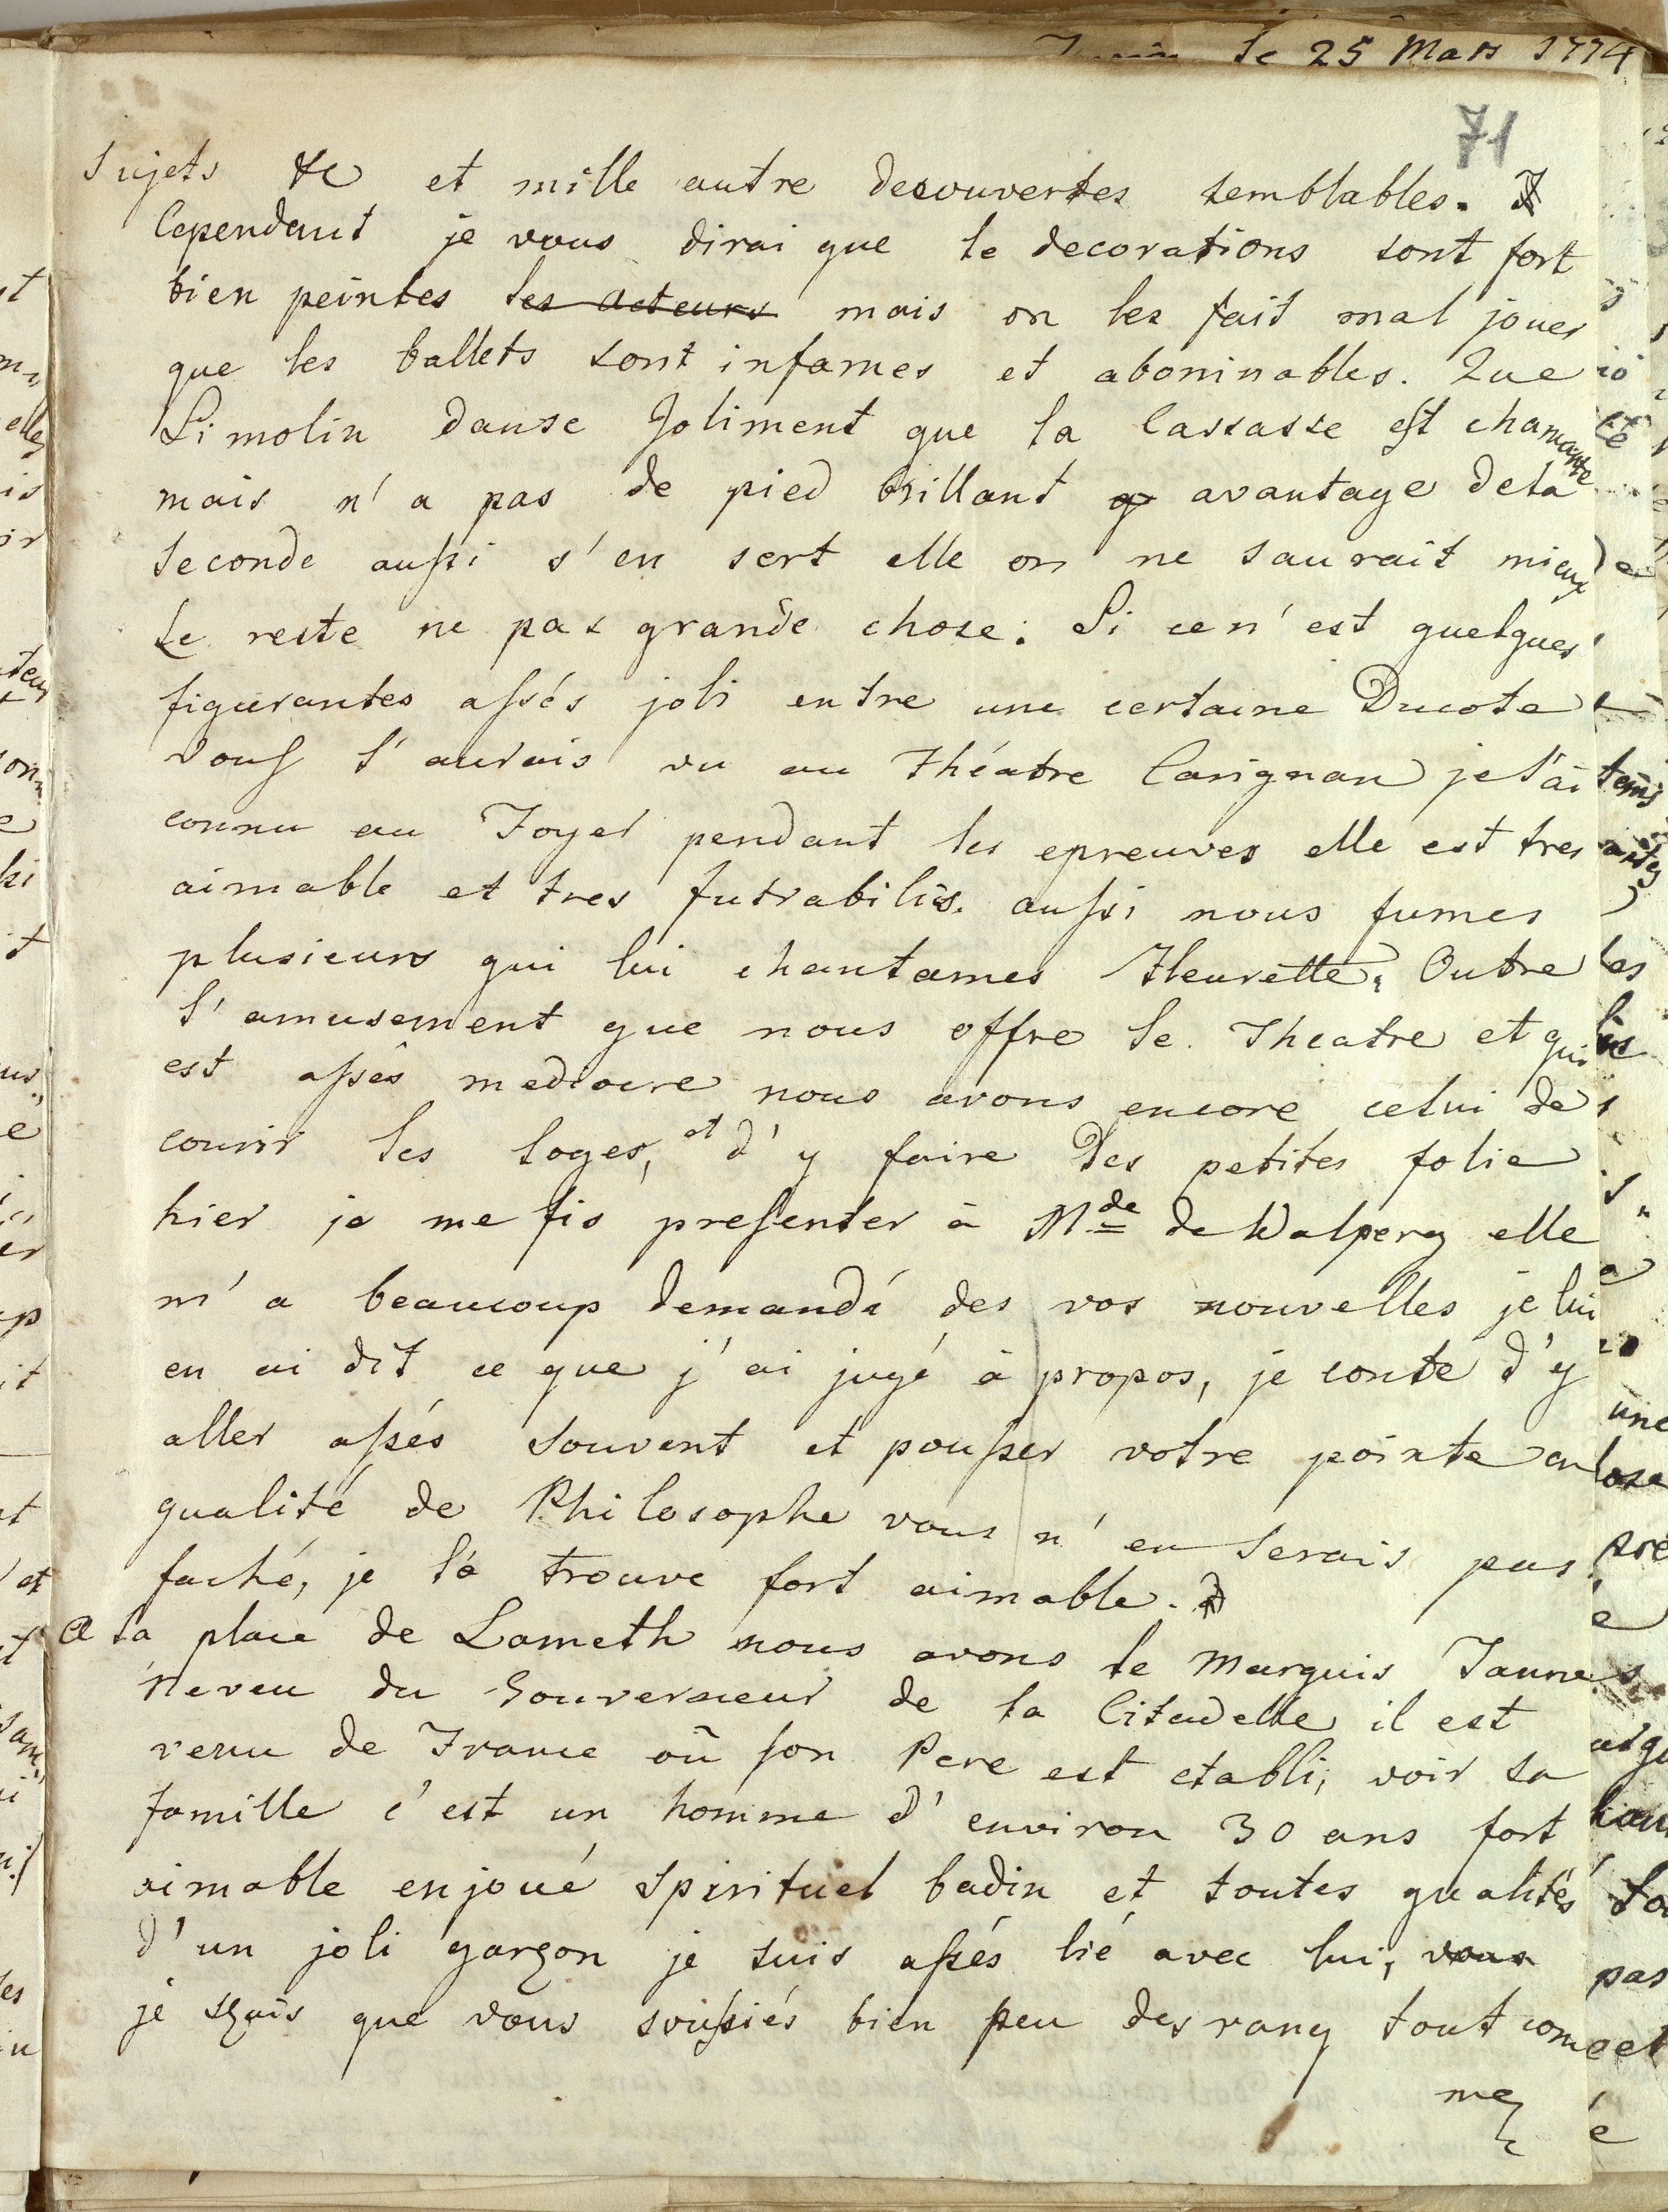 le 25 Mars 1774
71
Sujets &c et mille autre decouvertes semblables.
Cependant je vous dirai que le decorations sont fort
bien peintes les acteurs mais on les fait mal jouer
que les ballets sont infames et abominables. Que
Simolin danse Joliment que la Cassasse est chamante
mais n'a pas de pied brillant avantage dela
seconde aussi s'en sert elle on ne saurait mieux
Le reste ne pas grande chose: Si ce n'est quelques
figurantes assés joli entre une certaine Ducote
vous l'aurais vu au Théatre Carignan je l'ai
connu au Foyer pendant les epreuves elle est tres
aimable et tres futrabilis. aussi nous fumes
plusieurs qui lui chantames Fleurette. Outre
l'amusement que nous offre le Theatre et qui
est assés mediocre nous avons encore celui de
courir les loges, et d'y faire des petites folie
hier je me fis presenter à Mde de Walperg elle
m'a beaucoup demandé des vos nouvelles je lui
en ai dit ce que j'ai jugé à propos, je conte d'y
aller assés souvent et pousser votre pointe en
qualité de Philosophe vous n'en serais pas
faché, je la trouve fort aimable.
A la place de Lameth nous avons le Marquis Faune
Neveu du Gouverneur de la Citadelle il est
venu de France où son Pere est etabli, voir sa
famille c'est un homme d'environ 30 ans fort
aimable enjoué spirituel badin et toutes qualités
d'un joli garçon je suis assés lié avec lui, vous
je sçais que vous sousiés bien peu des rang tout com
me